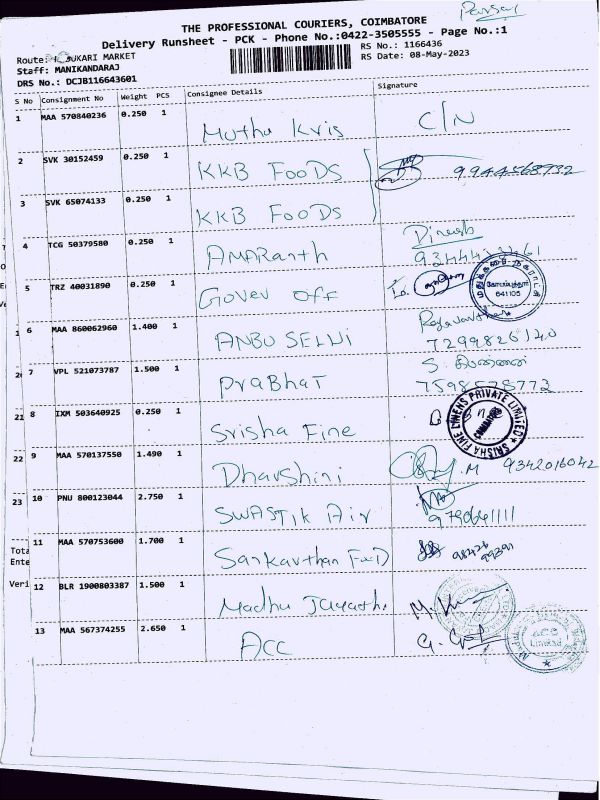 Parsal
THE PROFESSIONAL COURIERS, COIMBATORE
Delivery Runsheet - PCK - Phone No.:0422-3505555 - Page No.:1
Route: UKARI MARKET
RS No.: 1166436
Staff: MANIKANDARAJ
RS Date: 08-May-2023
DRS No.: DCJB116643601
S No Consignment No Weight PCS Consignee Details Signature
1 MAA 570840236 0.250 1 Muthu Kris C/N
2 SVK 30152459 0.250 1 KKB FooDS 9944568932
3 SVK 65074133 0.250 1 KKB FooDS
4 TCG 50379580 0.250 1 AMARanth Dinesh
5 TRZ 40031890 0.250 1 Gover off
641105
1 6 MAA 860062960 1.400 1 ANBU SELVi
7299826140
20 7 VPL 521073787 1.500 1 PraBhaT S.
21 8 IXM 503640925 0.250 1 Srisha Fine
SRISHA FINE LINENS PRIVATE LIMITED
COIMBATORE
22 9 MAA 570137550 1.490 1 Dharshini M 9342016042
23 10 PNU 800123044 2.750 1 SWASTIK Air
11 MAA 570753600 1.700 1
Tota
Ente
Veri 12 BLR 1900803387 1.500 1 Madhu
13 MAA 567374255 2.650 1 ACC
ACC Limited